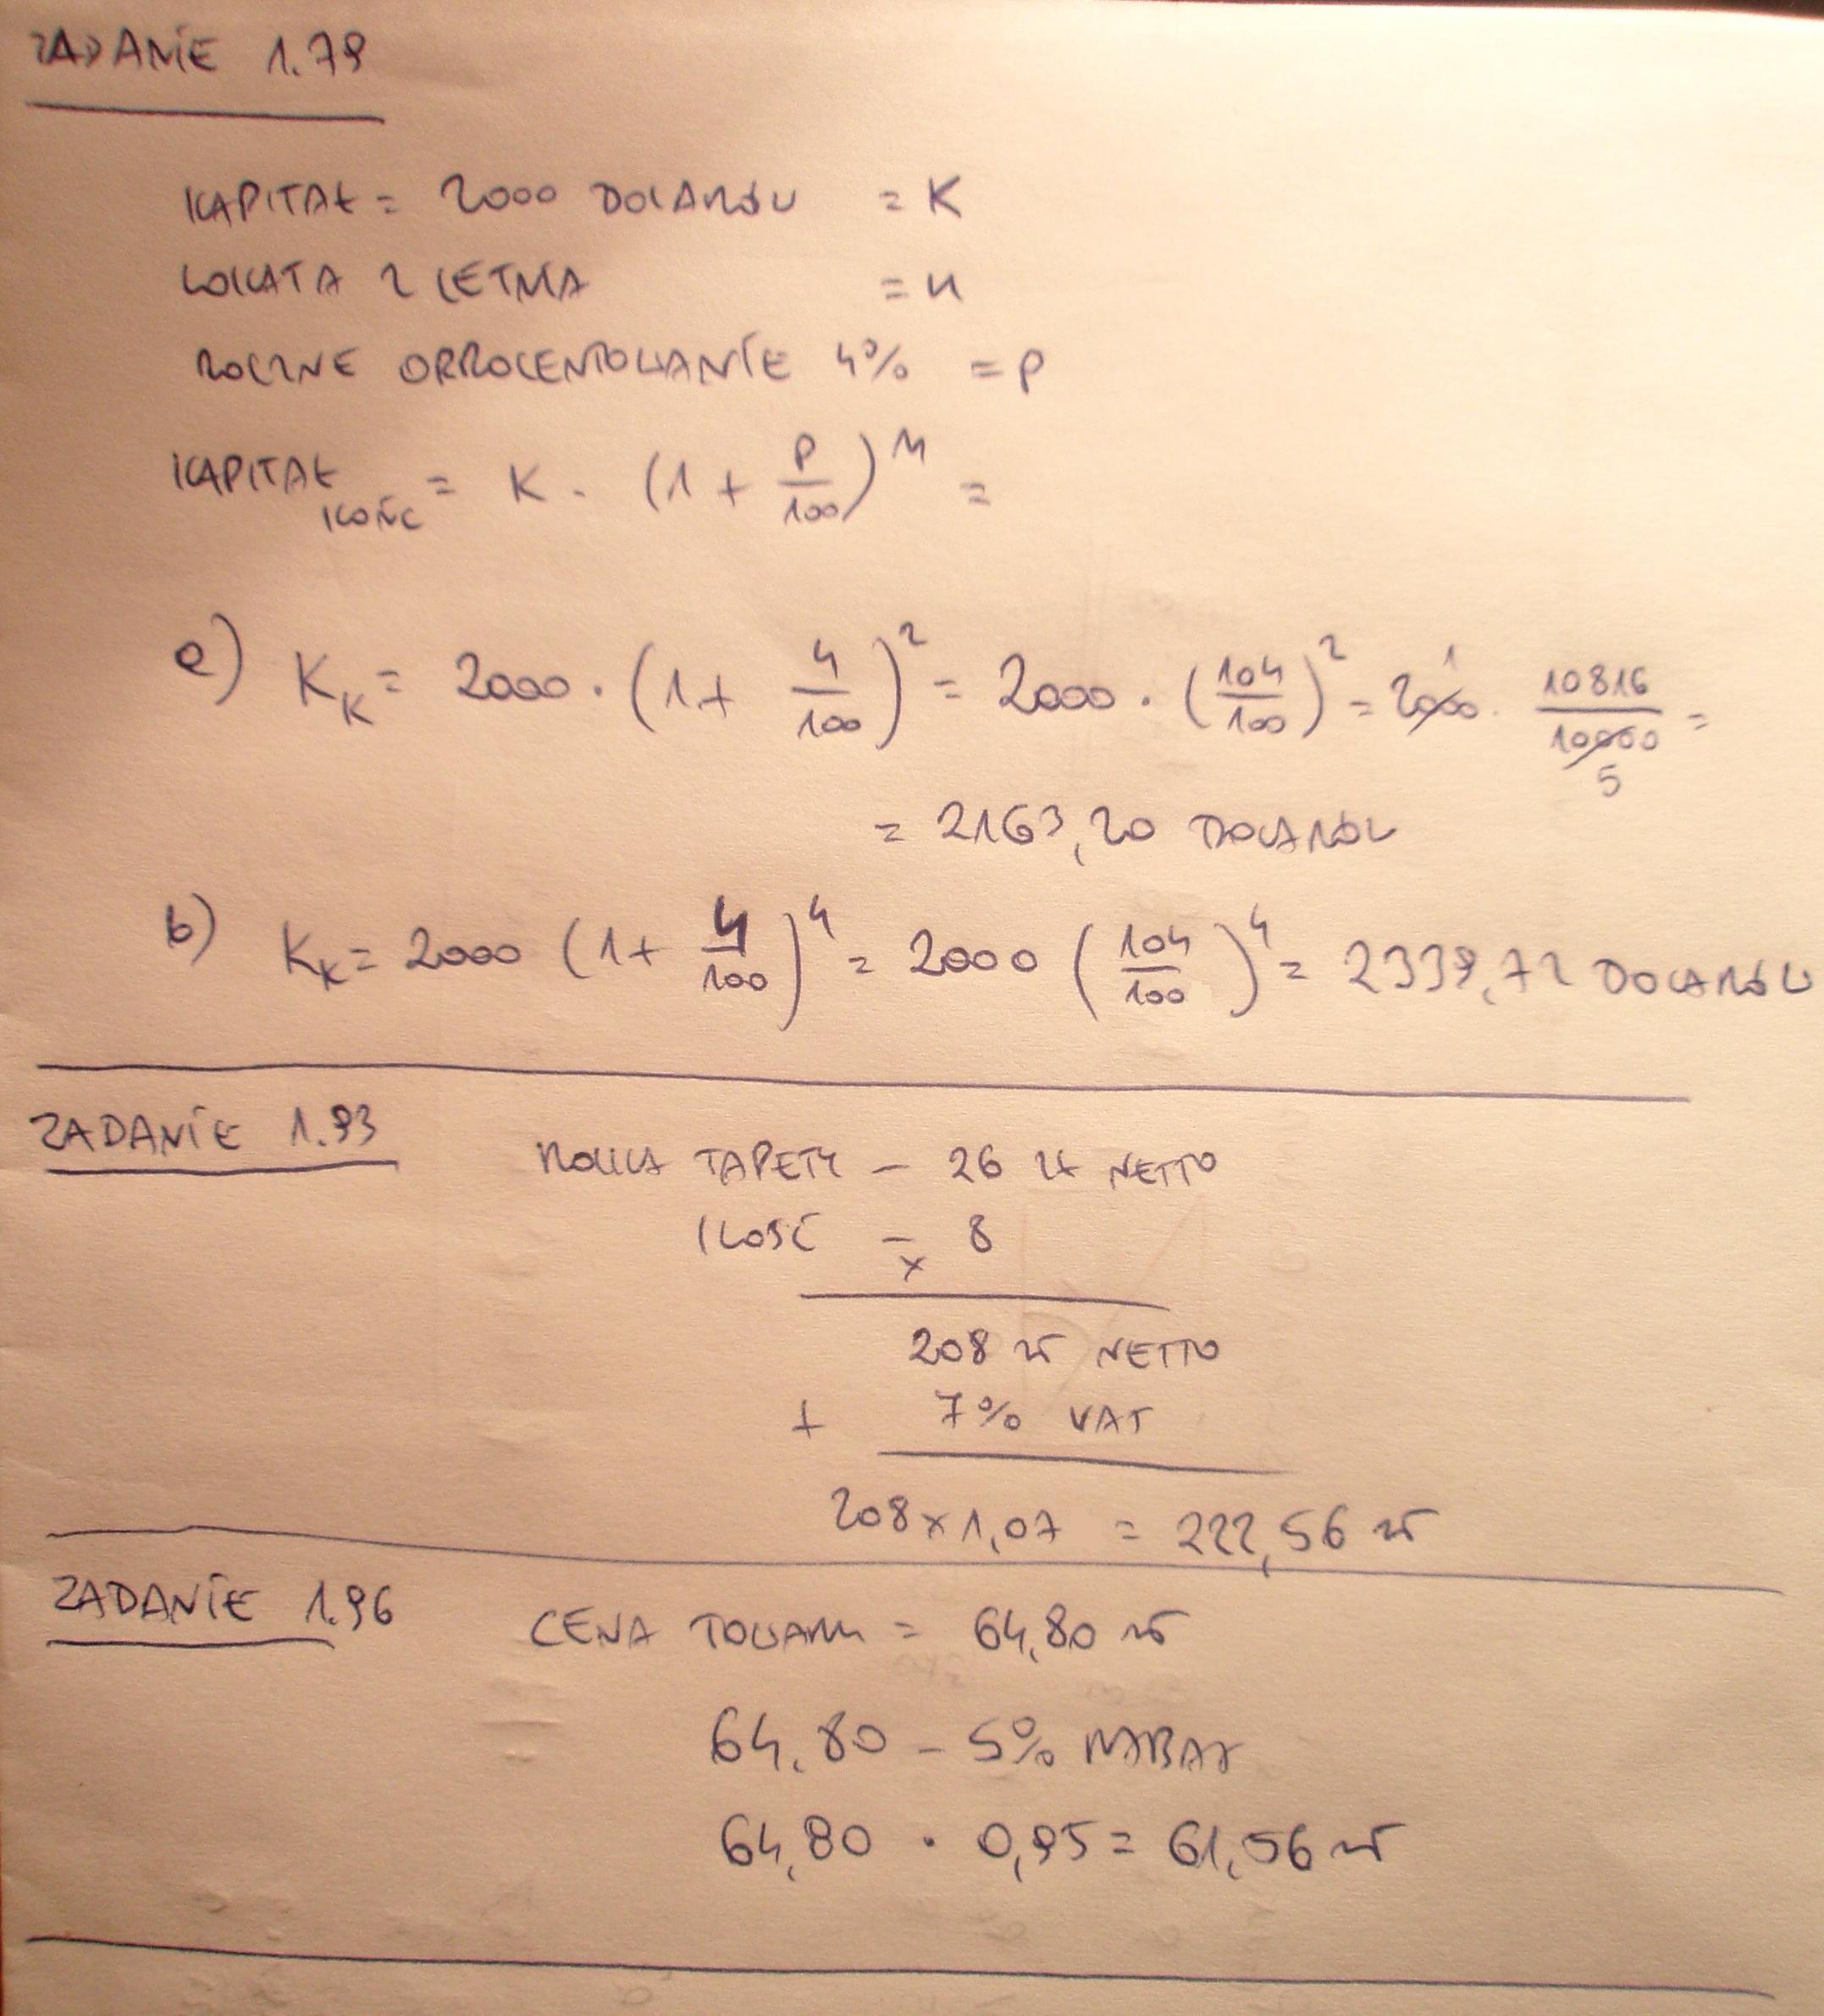 ZADANIE 1.79
KAPITAŁ = 2000 DOLARÓW = K
LOKATA 2 LETNIA = n
ROCZNE OPROCENTOWANIE 4% = P
KAPITAŁ KOŃC = K · (1 + P/100)^n =
a) K_K = 2000 · (1 + 4/100)^2 = 2000 · (104/100)^2 = 2000 1 · 10816/10000 5 =
= 2163,20 DOLARÓW
b) K_K = 2000 (1 + 4/100)^4 = 2000 (104/100)^4 = 2339,72 DOLARÓW
ZADANIE 1.93
ROLKA TAPETY – 26 ZŁ NETTO
ILOŚĆ – 8
x
208 zł NETTO
+ 7% VAT
208 x 1,07 = 222,56 zł
ZADANIE 1.96
CENA TOWARU = 64,80 zł
64,80 – 5% RABAT
64,80 · 0,95 = 61,56 zł